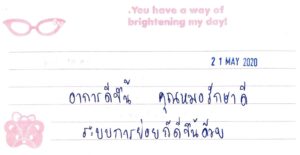 .You have a way of
brightening my day!
21 MAY 2020
อาการดีขึ้น คุณหมอรักษาดี
ระบบการย่อยก็ดีขึ้นด้วย